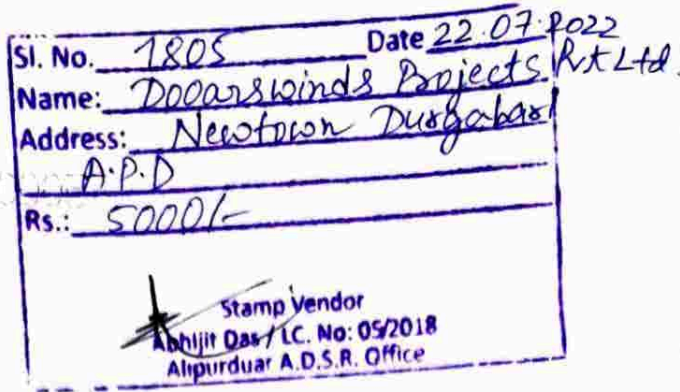 Sl. No. 1805 Date 22.07.2022
Name: Dooarswinds Projects Pvt Ltd.
Address: Newtown Durgabari
A.P.D
Rs.: 5000/-
Stamp Vendor
Abhijit Das / LC. No: 05/2018
Alipurduar A.D.S.R. Office